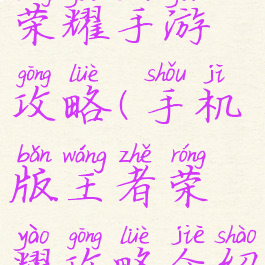 荣耀手游
gōng lüè shǒu jī
攻略(手机
bǎn wáng zhě róng
版王者荣
yào gōng lüè jiè shào
耀攻略介绍